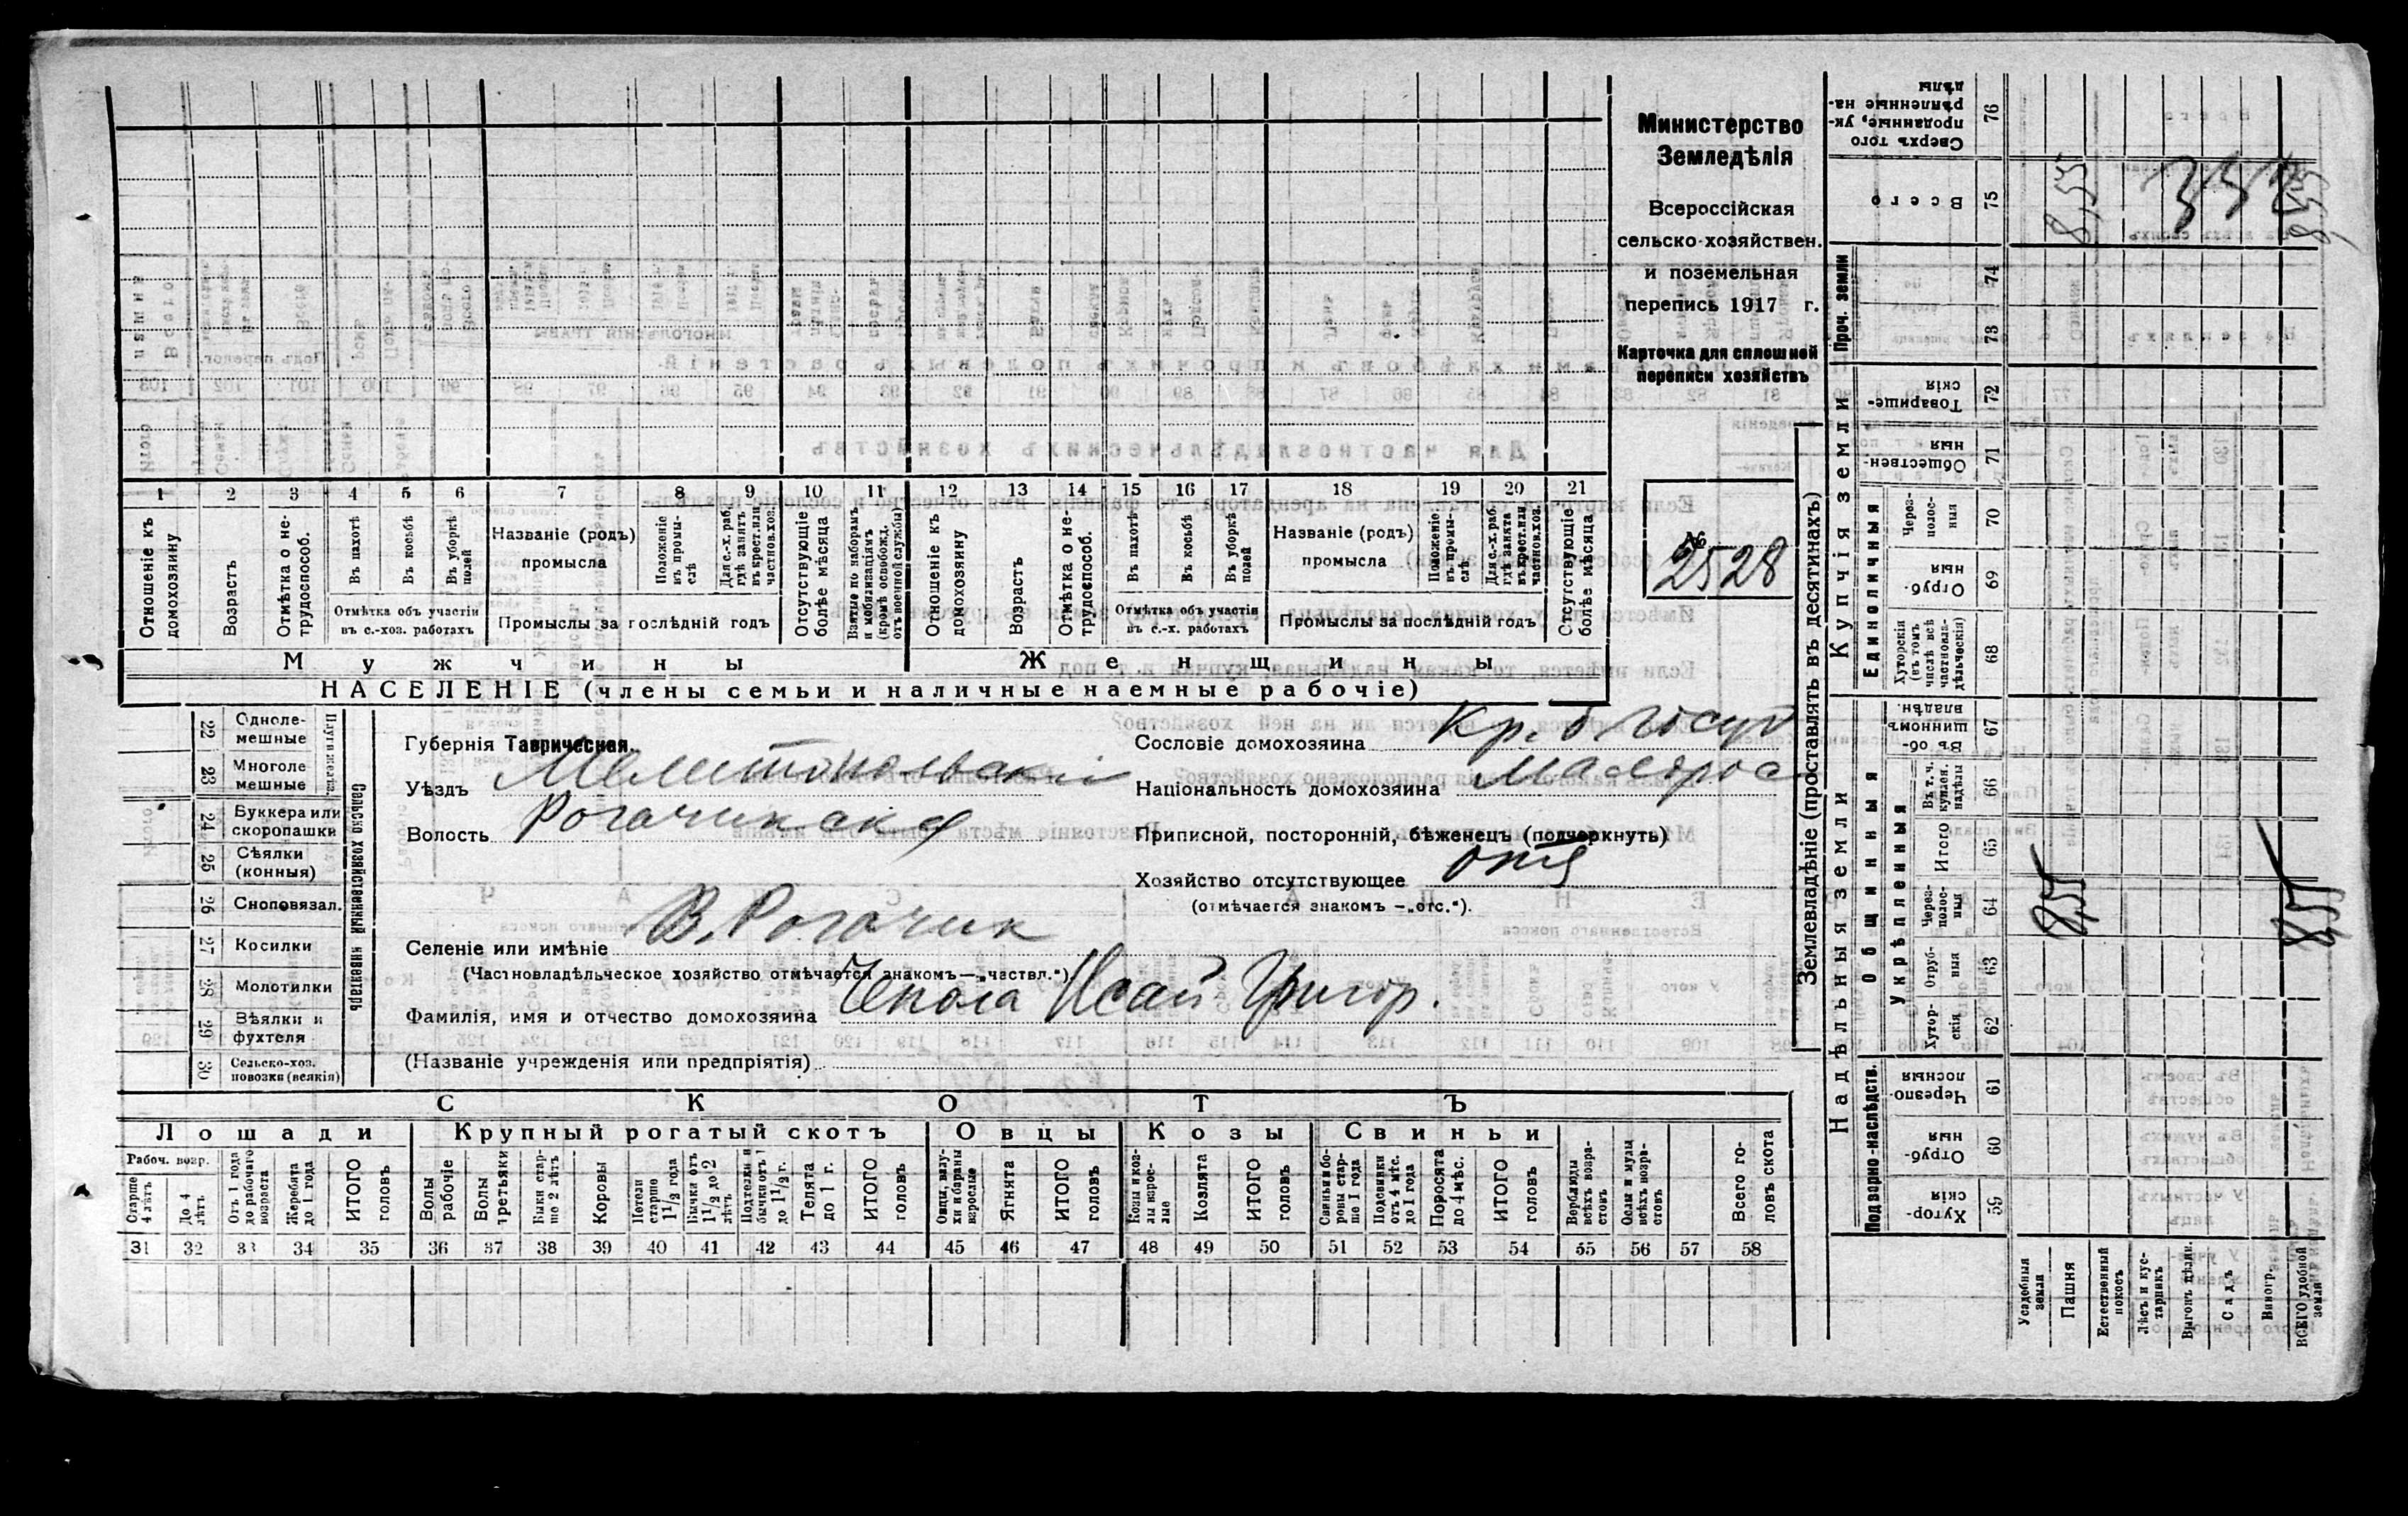 Министерство
Земледѣлія
Всероссійская
сельско-хозяйствен.
и поземельная
перепись 1917 г.
Карточка для сплошной
переписи хозяйствъ
№
2528
1 2 3 4 5 6 7 8 9 10 11 12 13 14 15 16 17 18 19 20 21
Отношеніе къ домохозяину
Возрастъ
Отмѣтка о не-трудоспособ.
Въ пахотѣ
Въ косьбѣ
Въ уборкѣ полей
Отмѣтка объ участіи
въ с.-хоз. работахъ
Названіе (родъ)
промысла
Положеніе въ промы-слѣ
Для с.-х. раб. гдѣ занятъ въ крест. или частнов. хоз.
Промыслы за послѣдній годъ
Отсутствующіе болѣе мѣсяца
Взятые по наборамъ и мобилизаціямъ (кромѣ освобожд. отъ военной службы)
Отношеніе къ домохозяину
Возрастъ
Отмѣтка о не-трудоспособ.
Въ пахотѣ
Въ косьбѣ
Въ уборкѣ полей
Отмѣтка объ участіи
въ с.-х. работахъ
Названіе (родъ)
промысла
Положеніе въ промы-слѣ
Для с.-х. раб. гдѣ занята въ крест. или частнов. хоз.
Промыслы за послѣдній годъ
Отсутствующіе болѣе мѣсяца
Мужчины
Женщины
НАСЕЛЕНІЕ (члены семьи и наличные наемные рабочіе)
22 Одноле-мешные
23 Многоле мешные
Плуги желѣз.
24 Буккера или скоропашки
25 Сѣялки (конныя)
26 Сноповязал.
27 Косилки
28 Молотилки
29 Вѣялки и фухтеля
30 Сельско-хоз. повозки (всякія)
Сельско хозяйственный инвентарь
Губернія Таврическая.
Уѣздъ Мелитопольскій
Волость Рогачикская
Селеніе или имѣніе В. Рогачик
(Частновладѣльческое хозяйство отмѣчается знакомъ—„частвл.“)
Фамилія, имя и отчество домохозяина Чепола Исай Григор.
(Названіе учрежденія или предпріятія)
Сословіе домохозяина Кр. б. госуд
Національность домохозяина Малорос
Приписной, посторонній, бѣженецъ (подчеркнуть)
Хозяйство отсутствующее
(отмѣчается знакомъ —„отс.“).
СКОТЪ
Лошади
Крупный рогатый скотъ
Овцы
Козы
Свиньи
Рабоч. возр.
Старше 4 лѣтъ
До 4 лѣтъ
Отъ 1 года до рабочаго возраста
Жеребята до 1 года
ИТОГО головъ
Волы рабочіе
Волы третьяки
Быки стар-ше 2 лѣтъ
Коровы
Нетели старше 1½ года
Бычки отъ 1½ до 2 лѣтъ
Подтелки и бычки отъ 1 до 1½ г.
Телята до 1 г.
ИТОГО головъ
Овцы, валу-хи и бараны взрослые
Ягнята
ИТОГО головъ
Козы и коз-лы взрос-лые
Козлята
ИТОГО головъ
Свиньи и бо-ровы стар-ше 1 года
Подсвинки отъ 4 мѣс. до 1 года
Поросята до 4 мѣс.
ИТОГО головъ
Верблюды всѣхъ возра-стовъ
Ослы и мулы всѣхъ возра-стовъ
Всего го-ловъ скота
31 32 33 34 35 36 37 38 39 40 41 42 43 44 45 46 47 48 49 50 51 52 53 54 55 56 57 58
Землевладѣніе (проставлять въ десятинахъ)
Сверхъ того проданные, ук-рѣпленные на-дѣлы 76
Всего 75
8,55
8,55
Проч. земли
74
73
Купчія земли
Товарище-скія 72
Обществен-ныя 71
Единоличныя
Через-полос-ныя 70
Отруб-ныя 69
Хуторскія (въ томъ числѣ всѣ частновла-дѣльческія) 68
Надѣльныя земли
Общинныя
Въ об-щинномъ владѣн. 67
Укрѣпленныя
Въ т. ч. куплен. надѣлы 66
Итого 65
Через-полос-ныя 64
8,55
8,55
Отруб-ныя 63
Хутор-скія 62
Подворно-наслѣдств.
Черезпо-лосныя 61
Отруб-ныя 60
Хутор-скія 59
Усадебныя земли
Пашня
Естественный покосъ
Лѣсъ и кус-тарникъ
Выгонъ
Садъ
Виногр.
ВСЕГО удобной земли